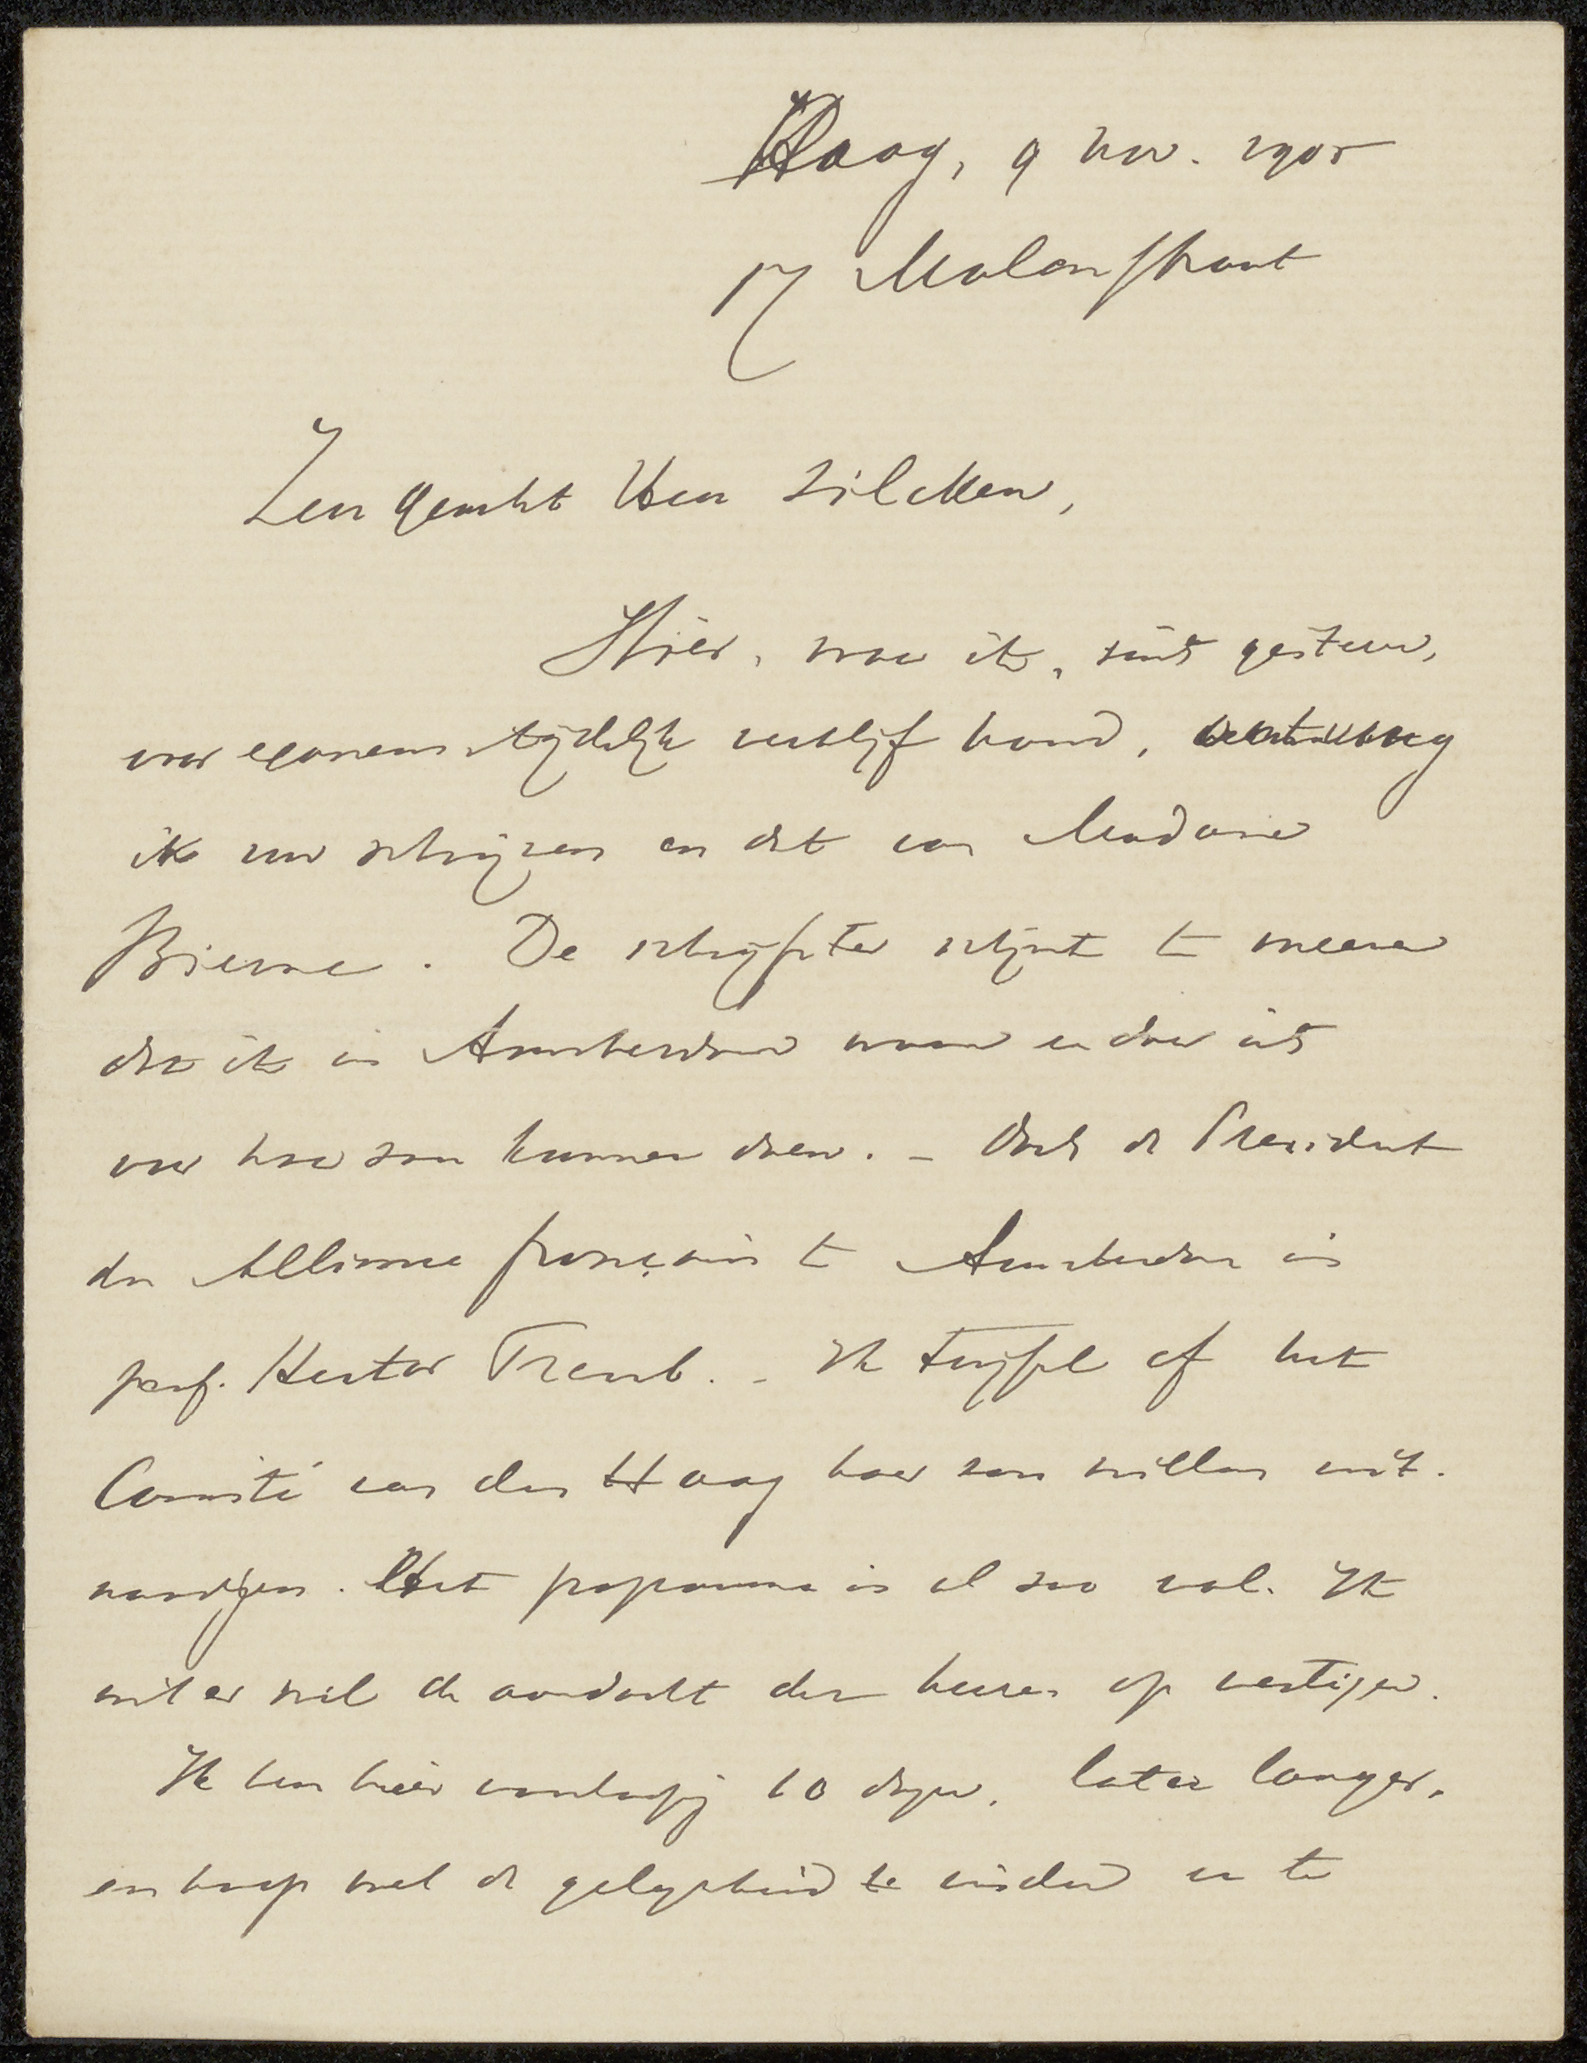 Haag, 9 nov. 1905
17 Molenstraat
Zeer geacht Heer Zilcken,
Hier, waar ik, sints gisteren,
voor tijdelijk verblijf houd, ontving
ik uw schrijven en dat van Madame
Bierne. De schrijfster schijnt te meenen
dat ik in Amsterdam woon en daar iets
voor haar zou kunnen doen. – Doch de President
der Alliance française te Amsterdam is
prof. Hector Treub. – Ik twijfel of het
Comité van den Haag haar zou willen uit-
noodigen. Het programma is al zoo vol. Ik
wil er wel de aandacht der heeren op vestigen.
Ik ben hier voorloopig 10 dagen, later langer,
en hoop wel de gelegenheid te vinden u te